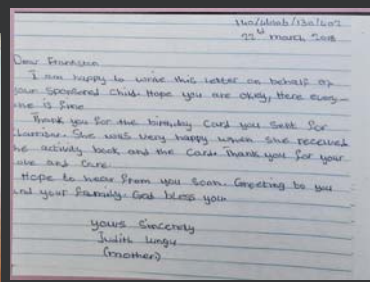 22nd march 2018
Dear
I am happy to write this letter on behalf of
your sponsored child. Hope you are okay, Here every-
one is fine
Thank you for the birthday card you sent for
She was very happy when she received
the activity book and the card. Thank you for your
love and care.
Hope to hear from you soon. Greeting to you
and your family. God bless you
yours Sincerely
Judith Lungu
(mother)